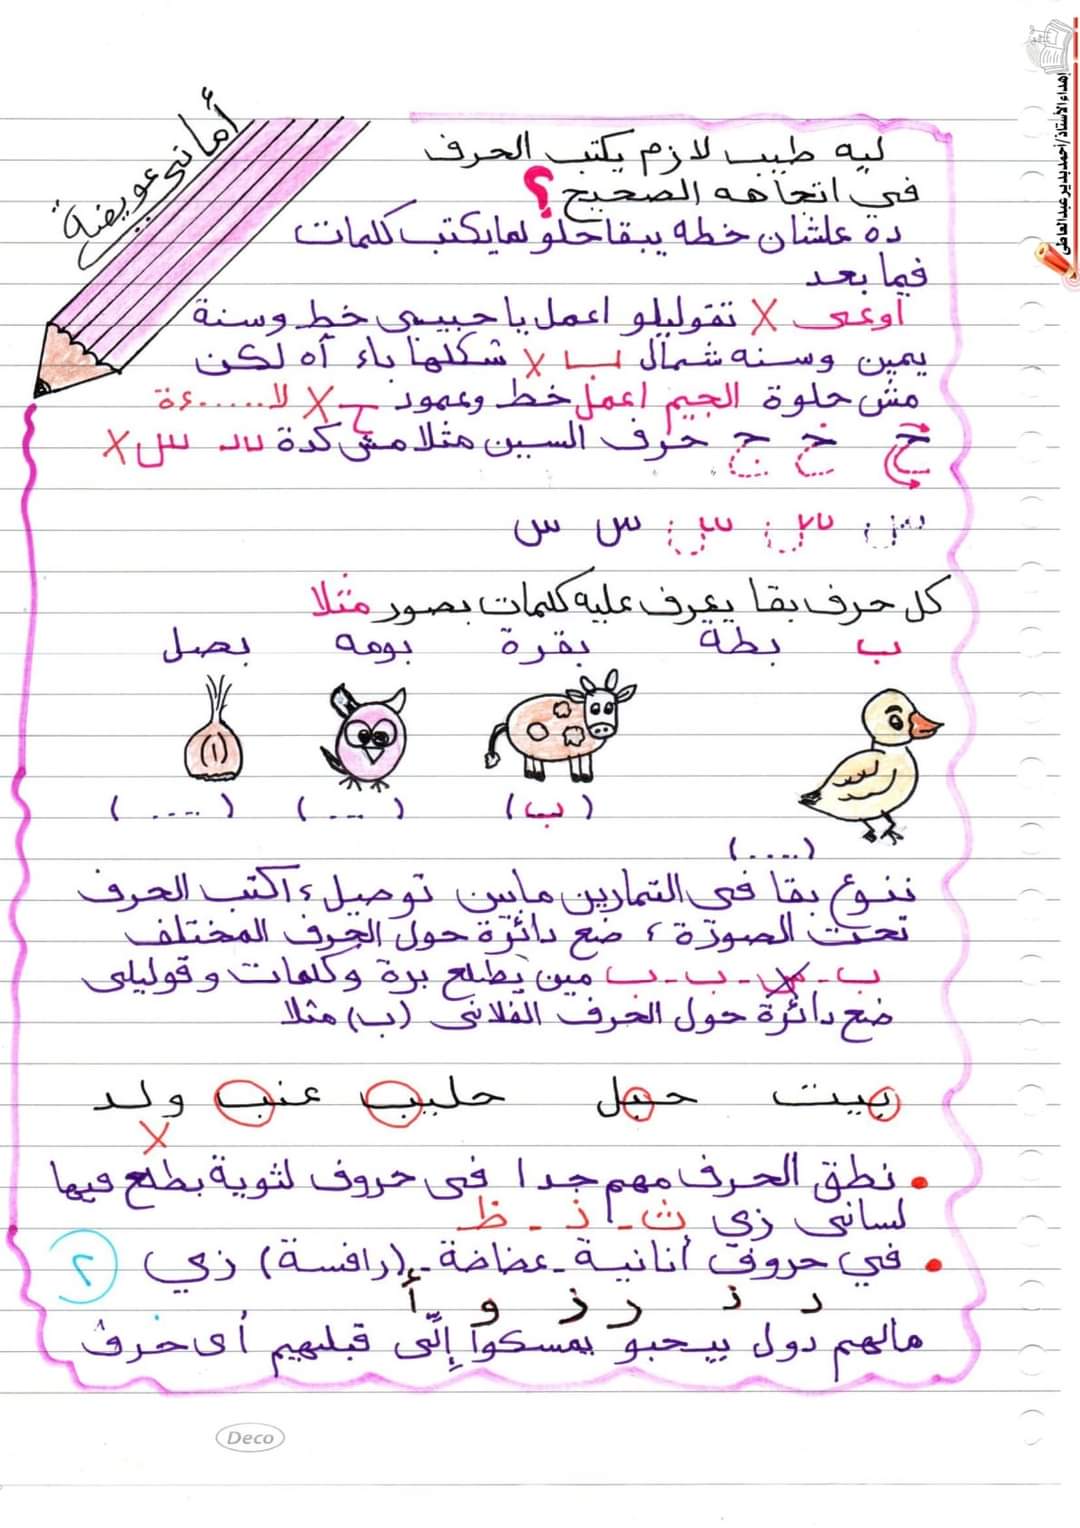 إهداء الأستاذ/أحمد بدير عبد العاطي
أماني عويضة
ليه طيب لازم يكتب الحرف
في اتجاهه الصحيح ؟
ده علشان خطه يبقا حلو لما يكتب كلمات
فيما بعد
أوعى X تقوليلو اعمل يا حبيبي خط وسنة
يمين وسنه شمال ب X شكلها باء آه لكن
مش حلوة الجيم اعمل خط وعمود ح X لا.....ءة
ح خ ج حرف السين مثلا مش كدة س س X
س س س س س
كل حرف بقا يعرف عليه كلمات بصور مثلا
ب بطة بقرة بومه بصل
(....) (ب) (...) (....)
ننوع بقا في التمارين مابين توصيل، اكتب الحرف
تحت الصورة، ضع دائرة حول الحرف المختلف
ب - س - ب - ب مين يطلع برة وكلمات وقوليلى
ضع دائرة حول الحرف الفلانى (ب) مثلا
بيت حبل حليب عنب ولد
X
• نطق الحرف مهم جدا في حروف لثوية بطلع فيها
لسانى زي ث - ذ - ظ
• في حروف أنانية - عضاضة - (رافسة) زي
٢
د ذ ر ز و أ
مالهم دول بيحبو يمسكوا إلّى قبليهم أى حرف
Deco